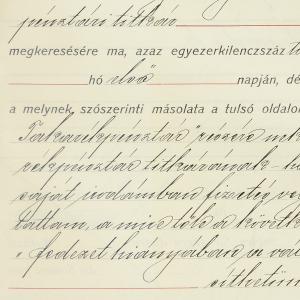 pénztári titkár
megkeresésére ma, azaz egyezerkilenczszáz
hó első napján, dé
a melynek, szószerinti másolata a tulsó oldalo
Takarékpénztár" részére
rékpénztár titkárának
saját irodámban fizetés
tattam, a mire tőle a követk
"fedezet hiányában a